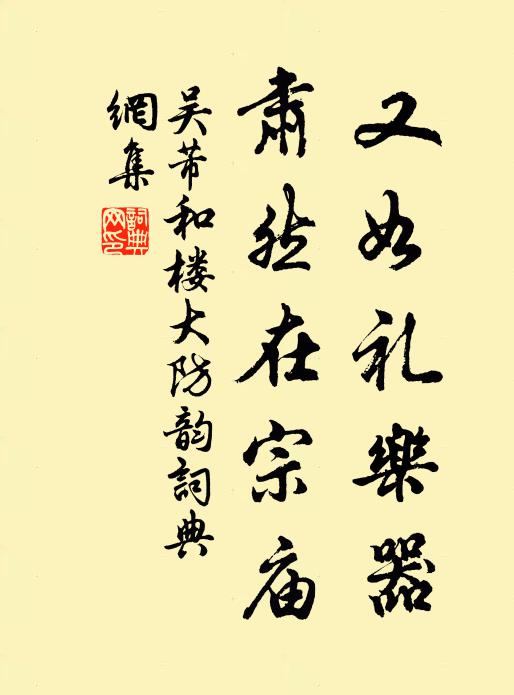 又如礼樂器
肅然在宗庙
吴芾和楼大防韵詞典
網集
詞典網印